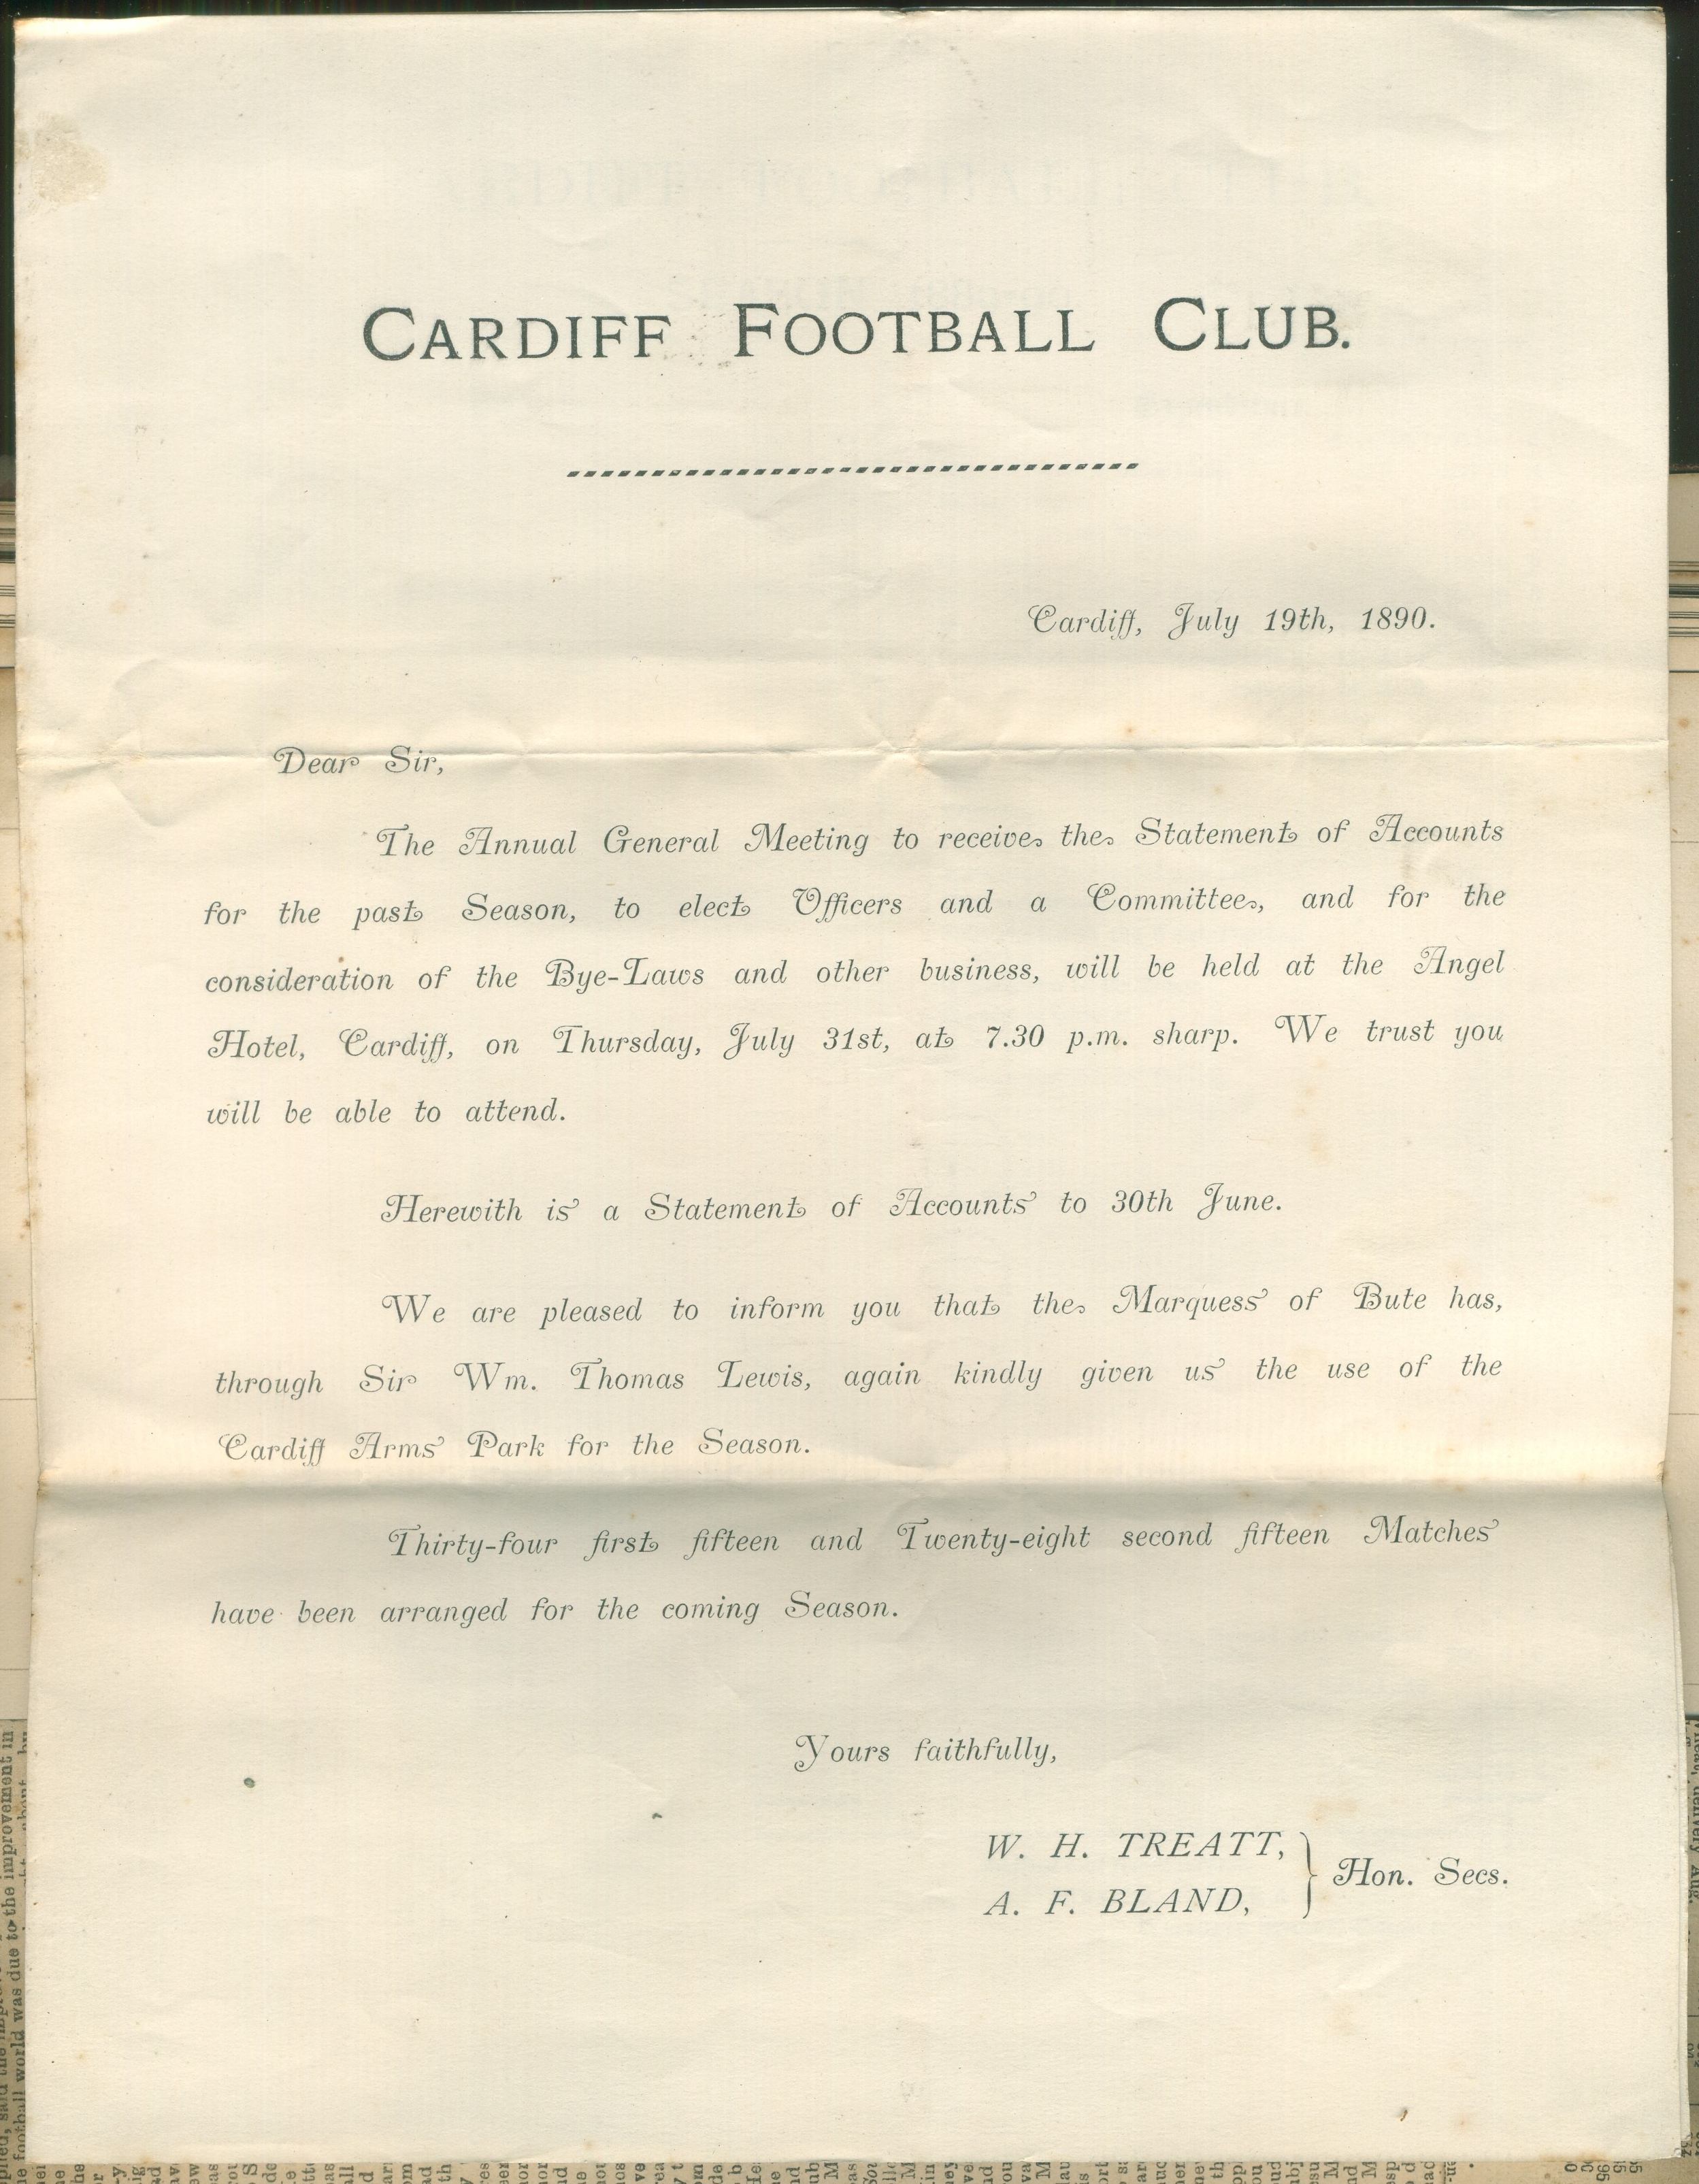 CARDIFF FOOTBALL CLUB.
Cardiff, July 19th, 1890.
Dear Sir,
The Annual General Meeting to receive the Statement of Accounts
for the past Season, to elect Officers and a Committee, and for the
consideration of the Bye-Laws and other business, will be held at the Angel
Hotel, Cardiff, on Thursday, July 31st, at 7.30 p.m. sharp. We trust you
will be able to attend.
Herewith is a Statement of Accounts to 30th June.
We are pleased to inform you that the Marquess of Bute has,
through Sir Wm. Thomas Lewis, again kindly given us the use of the
Cardiff Arms Park for the Season.
Thirty-four first fifteen and Twenty-eight second fifteen Matches
have been arranged for the coming Season.
Yours faithfully,
W. H. TREATT,
A. F. BLAND,
Hon. Secs.
the improvement in
football world was due to